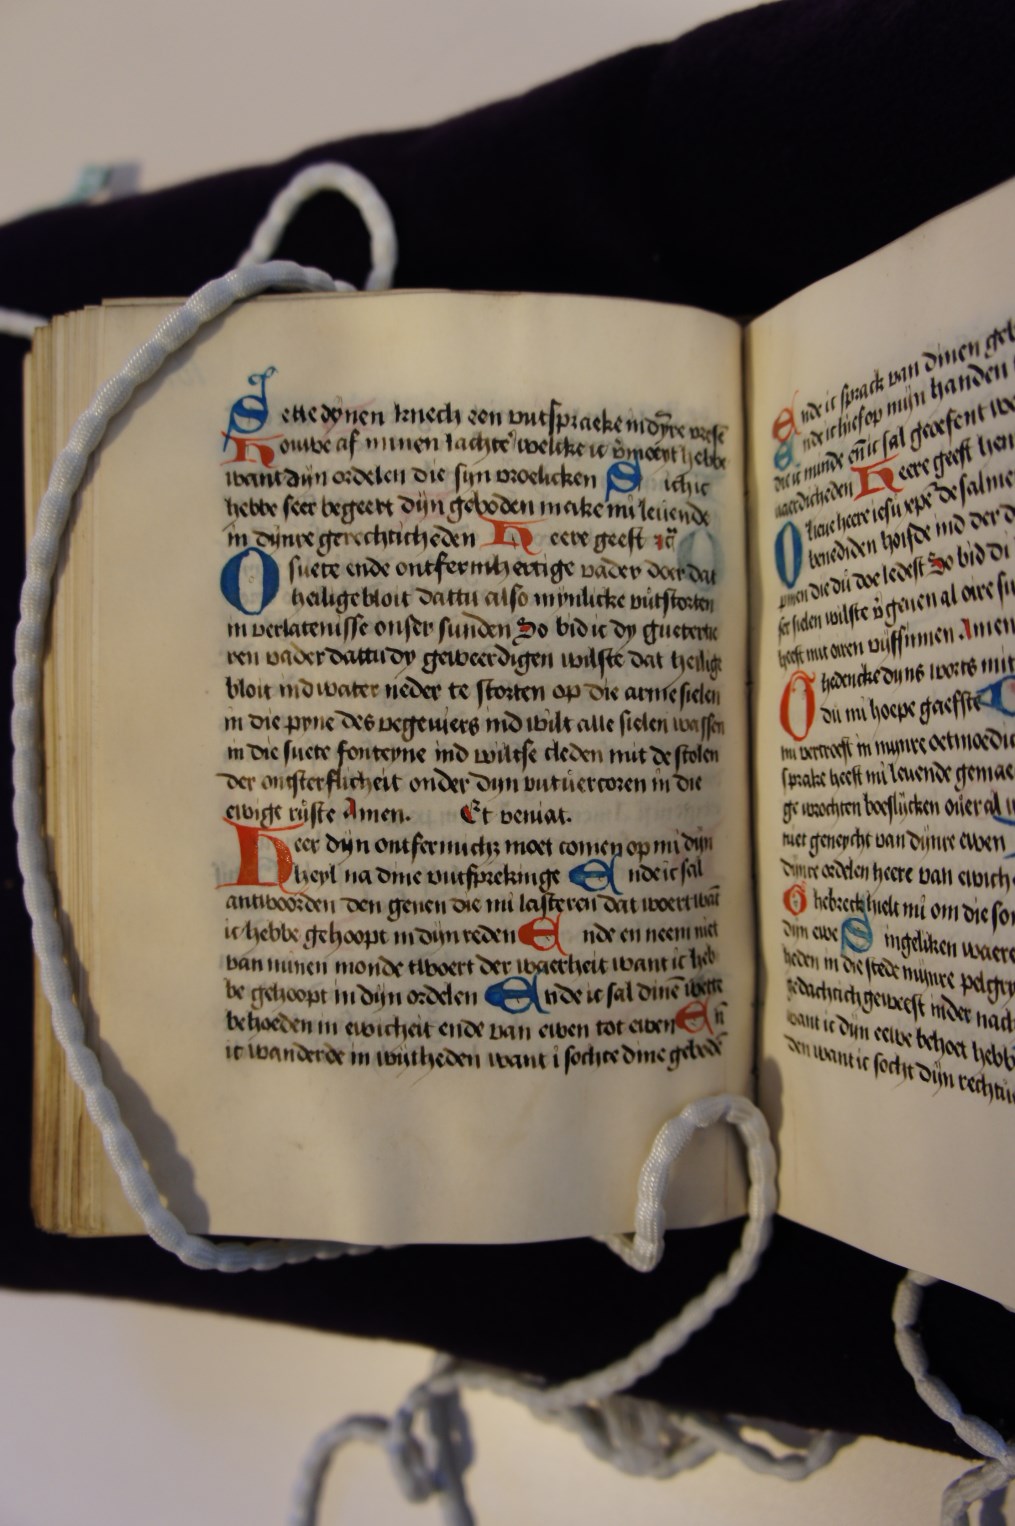 Sette dynen knech een vutspraeke in dyre vrese
Houwe af minen lachter welcke ic vmoert hebbe
want dijn ordelen die sijn vroelicken Sich ic
hebbe seer begeert dijn geboden make mi leuende
in dynre gerechticheden Heere geeft
O suete ende ontfermhertige vader doer dat
heilige bloit dattu also mynlicke vutstorten
in verlatenisse onser sunden So bid ic dy gueterte
ren vader dattu dy geweerdigen wilste dat heilige
bloit ind water neder te storten op die arme sielen
in die pyne des vegeuiers ind wilt alle sielen wassen
in die suete fonteyne ind wiltse cleden mit de stolen
der onsterflicheit onder dyn vutuercoren in die
ewige ruste Amen. Et veniat.
Heer dijn ontfermichz moet comen op mi dijn
heyl na dine vutsprekinge Ende ic sal
antwoorden den genen die mi lasteren dat woert wāt
ic hebbe gehoopt in dijn reden Ende en neem niet
van minen monde twoert der waerheit want ic heb
be gehoopt in dijn ordelen Ende ic sal dinē wette
behoeden in ewicheit ende van ewen tot ewen Eñ
ic wanderde in wijtheden want i sochte dine gebode
Ende ic sprack van dinen
nde ic hief op mijn handen
die ic minde eñ ic sal geoefent
waerdicheden Heere geeft
O lieue heere iesu xpe de salme
benediden hoifde ind der
pinen die du doe ledest So bid
ser sielen wilste geuen al oire
heeft mit oiren vijfsinnen Amen
Ghedencke dyns worts mit
du mi hoepe gaefste
mi vertroest in mynre oetmoedic
sprake heeft mi leuende gemae
ge wrochten boeslicken ouer al
niet geneycht van dijnre ewen
dijnre ordelen heere van ewich
Ghebreck hielt mi om die
dijn ewe Singeliken waere
heden in die stede mynre pelgry
gedachtich geweest inder nach
want ic dijn eewe behoet hebb
den want ic socht dijn rechtu